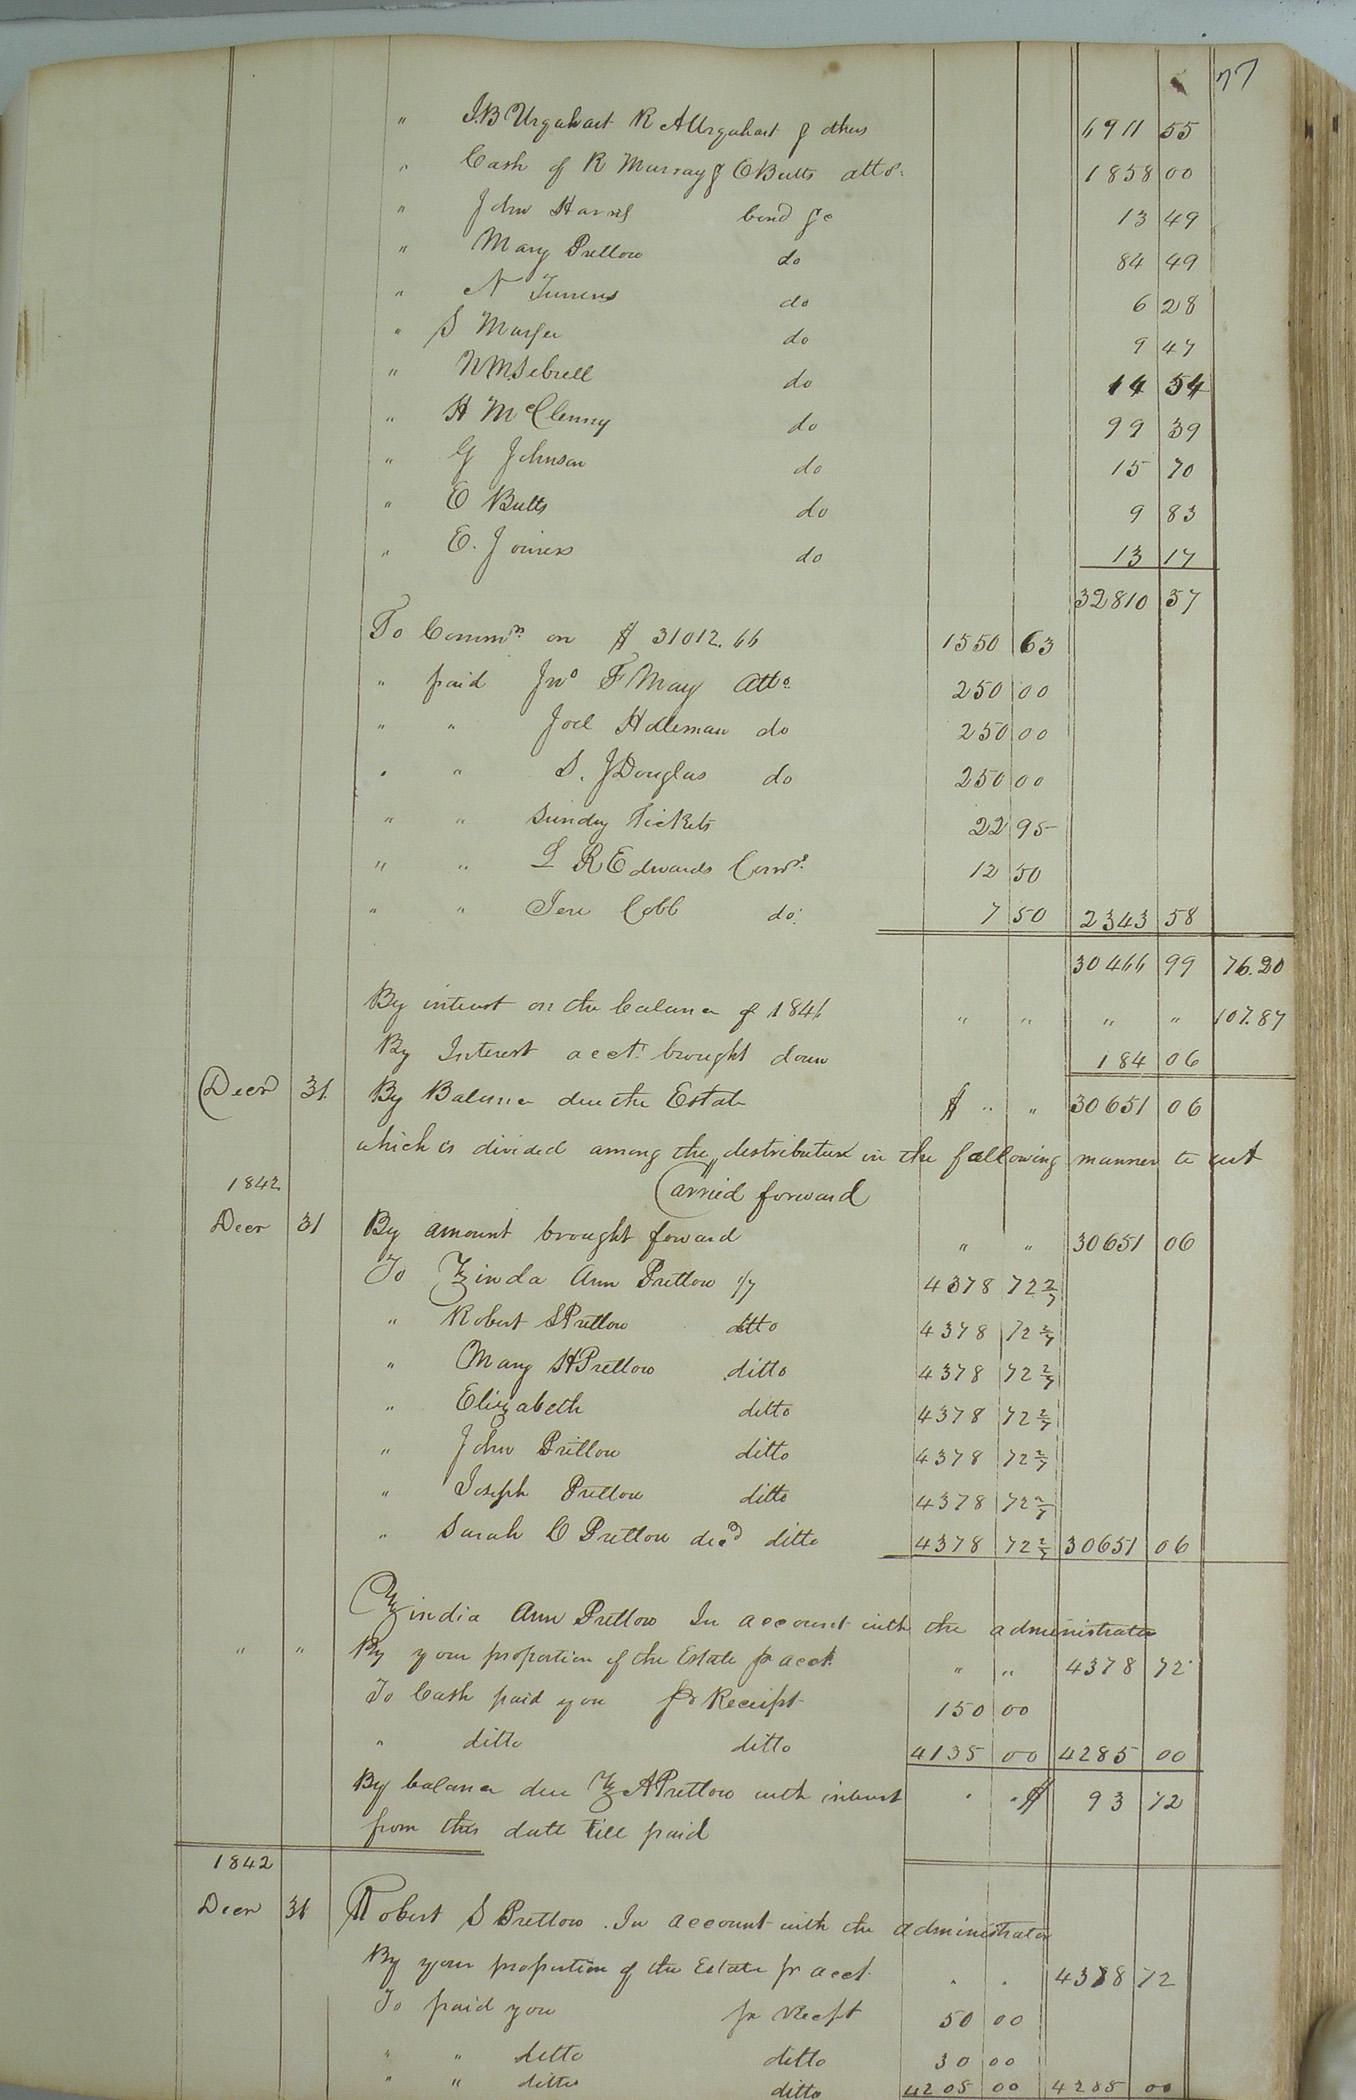 77
" J.B Urquhart R A Urquhart & others 6911 55
" Cash of R Murray & O Butts atto. 1858 00
" John Harris bond &c 13 49
" Mary Pretlow do 84 49
" N Turners do 6 28
" S do 9 47
" W M Sebrell do 14 54
" H McClenny do 99 39
" G Johnson do 15 70
" O Butts do 9 83
" E. Joiners do 13 17
32810 57
To Commn. on $ 31012.66 1550 63
" paid Jno F May Atto. 250 00
" " Joel Holleman do 250 00
" " S. J Douglas do 250 00
" " Sundry Tickets 22 95
" " L R Edwards Comr. 12 50
" " Jere Cobb do. 7 50 2343 58
30466 99 76.20
By interest on the balance of 1841 " " " " 107.87
By Interest acct. brought down 184 06
Decr 31 By Balance due the Estate $ " " 30651 06
which is divided among the distributees in the following manner to wit
Carried forward
1842
Decr 31 By amount brought forward " " 30651 06
To Zinda Ann Pretlow 1/7 4378 72 2/7
" Robert S Pretlow ditto 4378 72 2/7
" Mary H Pretlow ditto 4378 72 2/7
" Elizabeth ditto 4378 72 2/7
" John Pretlow ditto 4378 72 2/7
" Joseph Pretlow ditto 4378 72 2/7
" Sarah C Pretlow decd ditto 4378 72 2/7 30651 06
Zindia Ann Pretlow In account with the administrator
" " By your proportion of the Estate pr acct. " " 4378 72
To Cash paid you pr Receipt 150 00
" ditto ditto 4135 00 4285 00
By balance due Z A Pretlow with interest " " $ 93 72
from this date till paid
1842
Decr 31 Robert S Pretlow. In account with the administrator
By your proportion of the Estate pr acct. " " 4378 72
To paid you pr Recpt 50 00
" " ditto ditto 30 00
" " ditto ditto 4205 00 4285 00